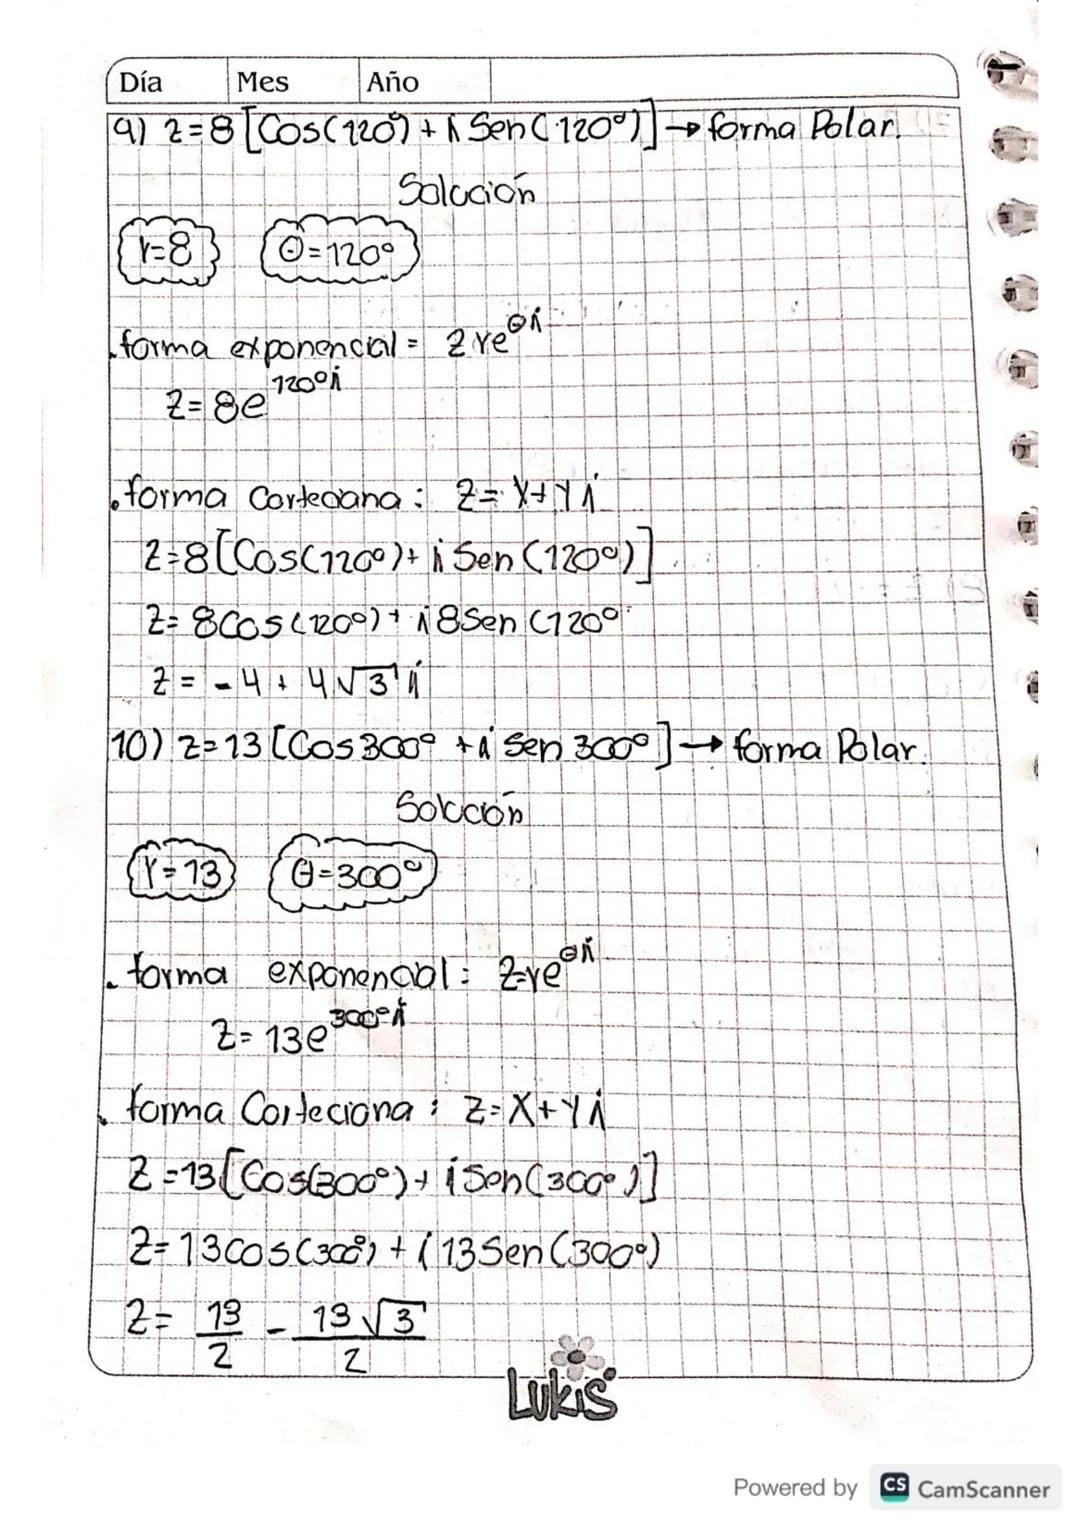 Día Mes Año
9) z=8 [Cos(120°) + i Sen(120°)] → forma Polar.
Solución
r=8 θ=120°
.forma exponencial = z re^θi
z=8e^120°i
.forma Carteciana : z= x+yi
z=8[Cos(120°)+ i Sen (120°)]
z= 8Cos(120°)+ i8Sen (120°
z = -4 + 4√3 i
10) z=13 [Cos300° +i Sen 300°] → forma Polar.
Solución
r=13 θ=300°
. forma exponencial : z=re^θi
z= 13e^300°i
. forma Carteciona : z=x+yi
z =13[Cos(300°)+ i Sen(300°)]
z= 13cos(300°) + i 13Sen(300°)
z= 13/2 - 13√3/2
LUKIS
Powered by CS CamScanner